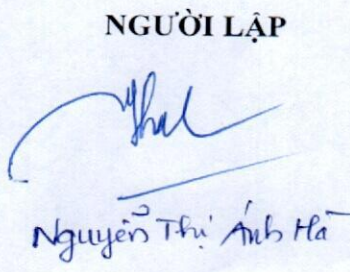 NGƯỜI LẬP
Nguyễn Thị Ánh Hà